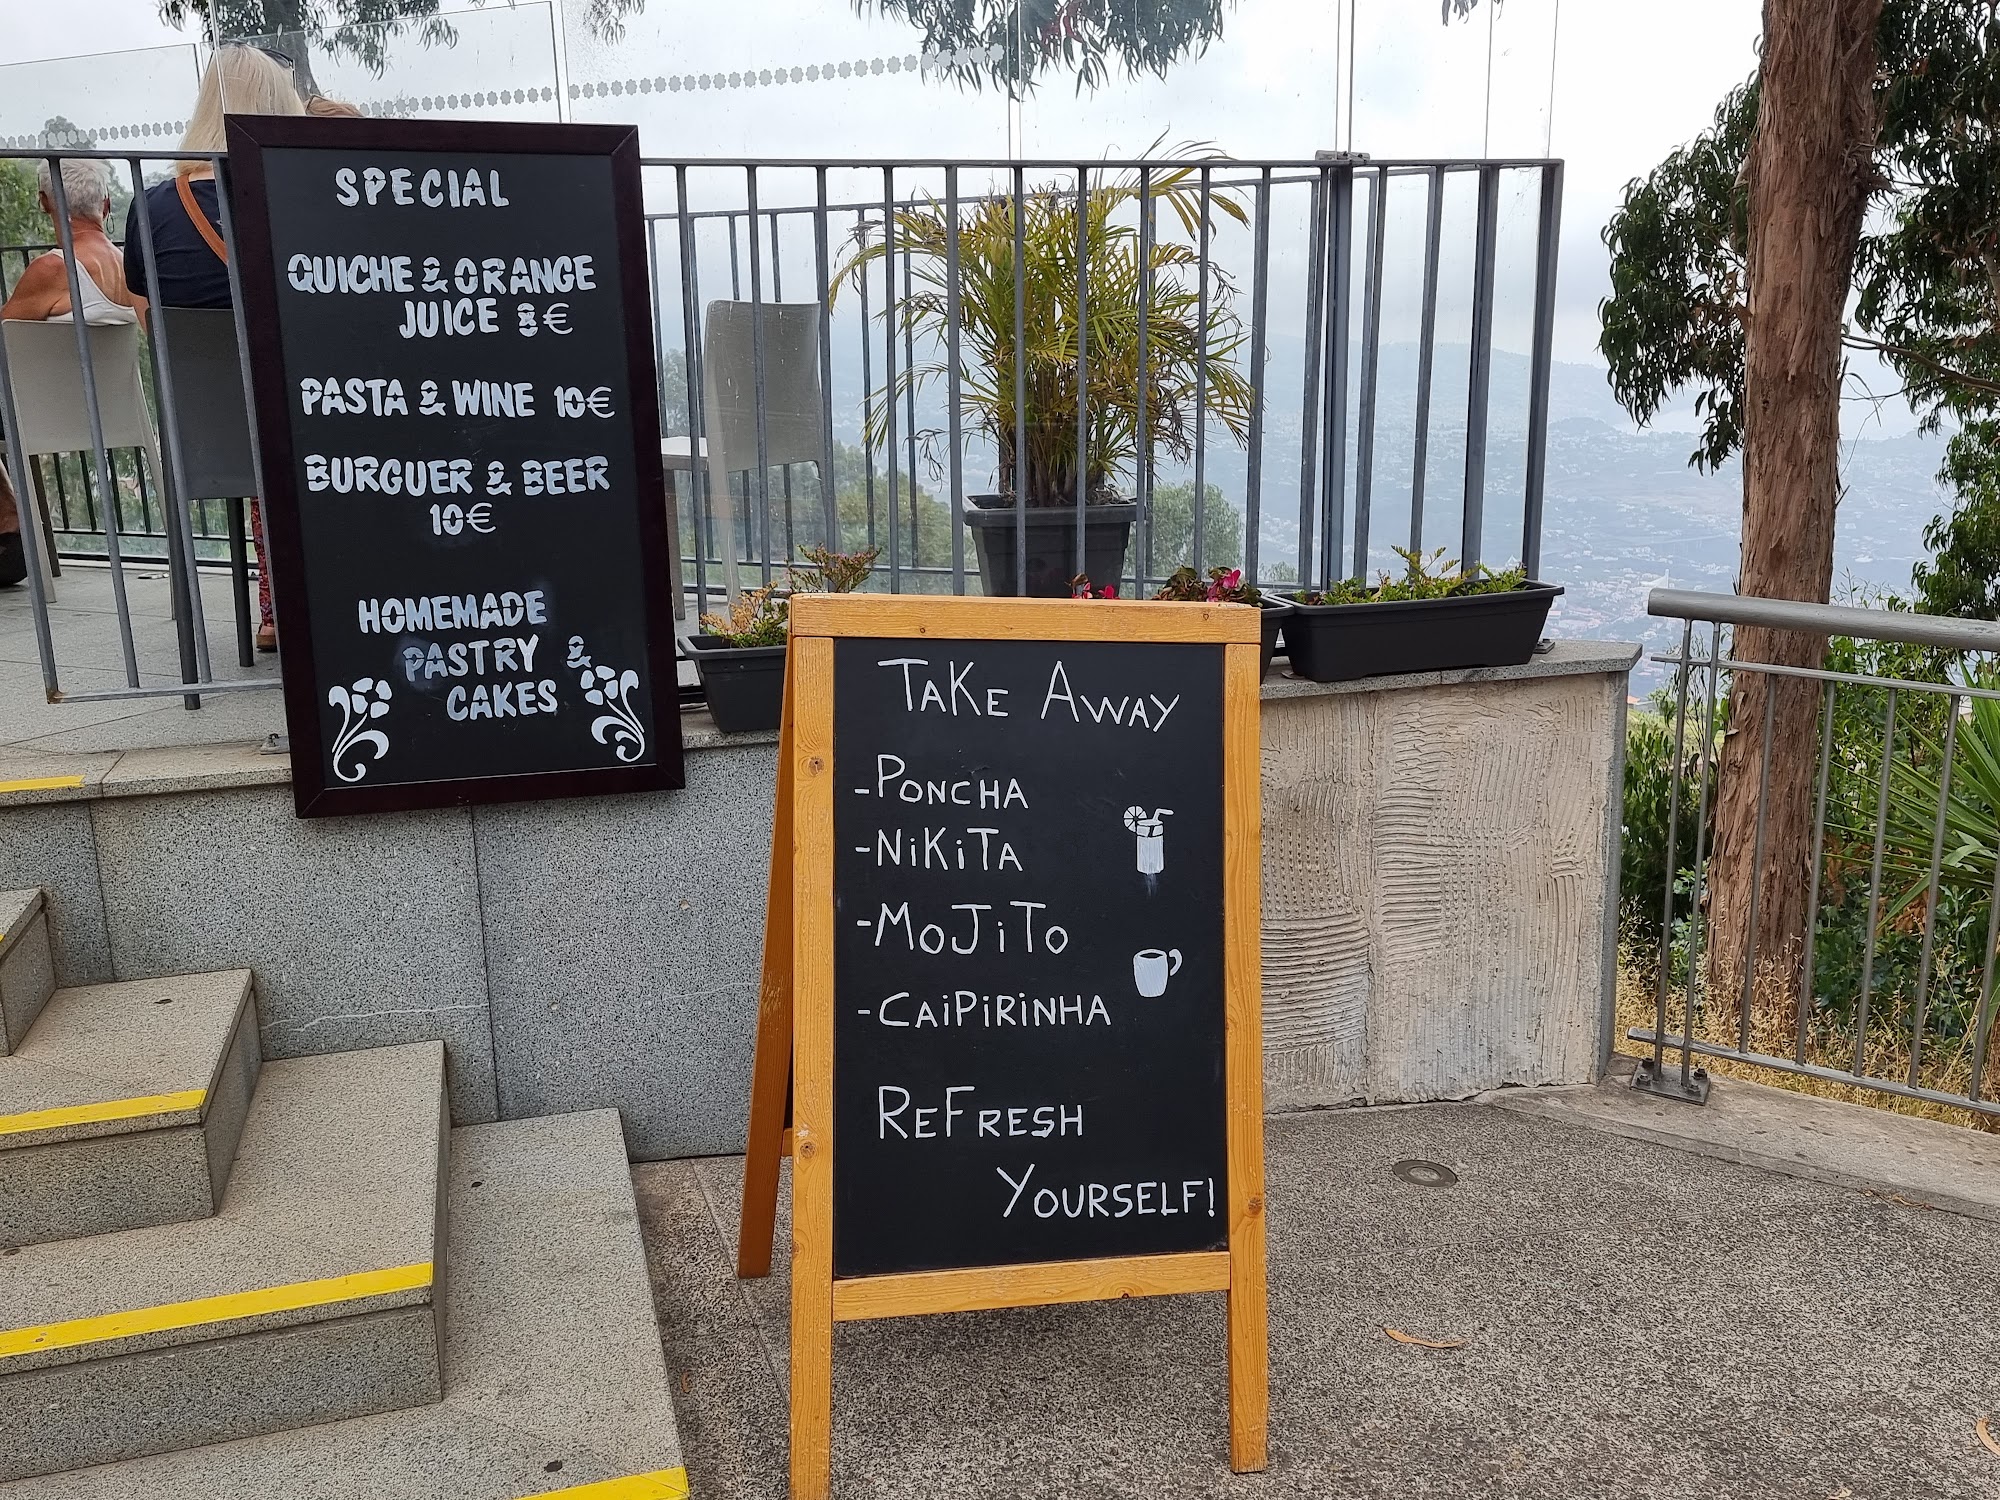 SPECIAL
QUICHE & ORANGE
JUICE 8€
PASTA & WINE 10€
BURGUER & BEER
10€
HOMEMADE
PASTRY &
CAKES
TAKE AWAY
-PONCHA
-NiKiTA
-MOJiTO
-CAiPiRiNHA
REFRESH
YOURSELF!